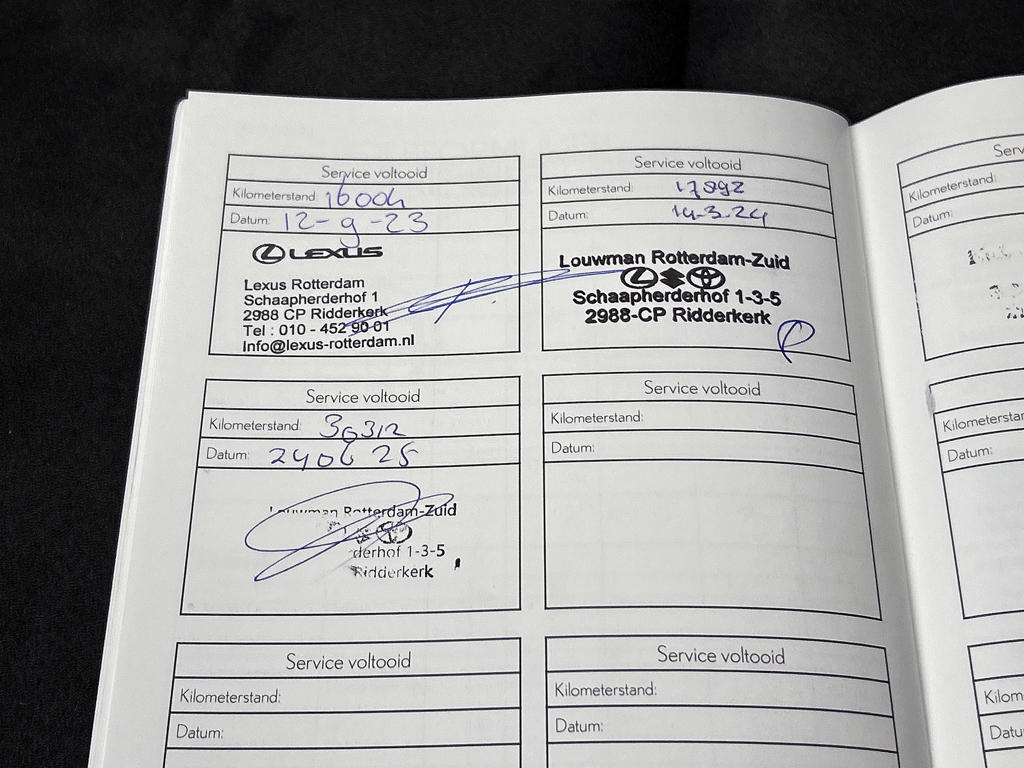 Service voltooid
Kilometerstand: 16004
Datum: 12-9-23
LEXUS
Lexus Rotterdam
Schaapherderhof 1
2988 CP Ridderkerk
Tel : 010 - 452 90 01
Info@lexus-rotterdam.nl
Service voltooid
Kilometerstand: 17892
Datum: 14-3-24
Louwman Rotterdam-Zuid
Schaapherderhof 1-3-5
2988-CP Ridderkerk
Service voltooid
Kilometerstand: 36312
Datum: 240625
Louwman Rotterdam-Zuid
derhof 1-3-5
Ridderkerk
Service voltooid
Kilometerstand:
Datum:
Service voltooid
Kilometerstand:
Datum:
Service voltooid
Kilometerstand:
Datum:
Serv
Kilometerstand:
Datum:
Kilometersta
Datum:
Kilom
Datu